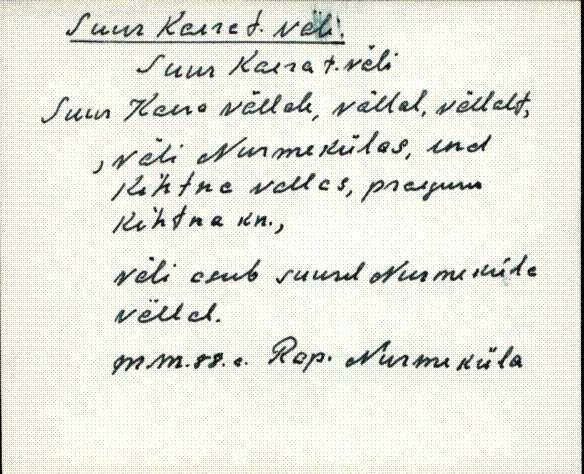 Suur Kaera t. väli.
Suur Kaera t. väli
Suur Kaera väĺlalẹ, väĺlal, väĺlalt,
, väli Nurmekülas, end
Kehtna vallas, praegune
Kehtna kn.,
väli asub suurel Nurmeküla
väĺlal.
m.m. 88. a. Rap. Nurmeküla